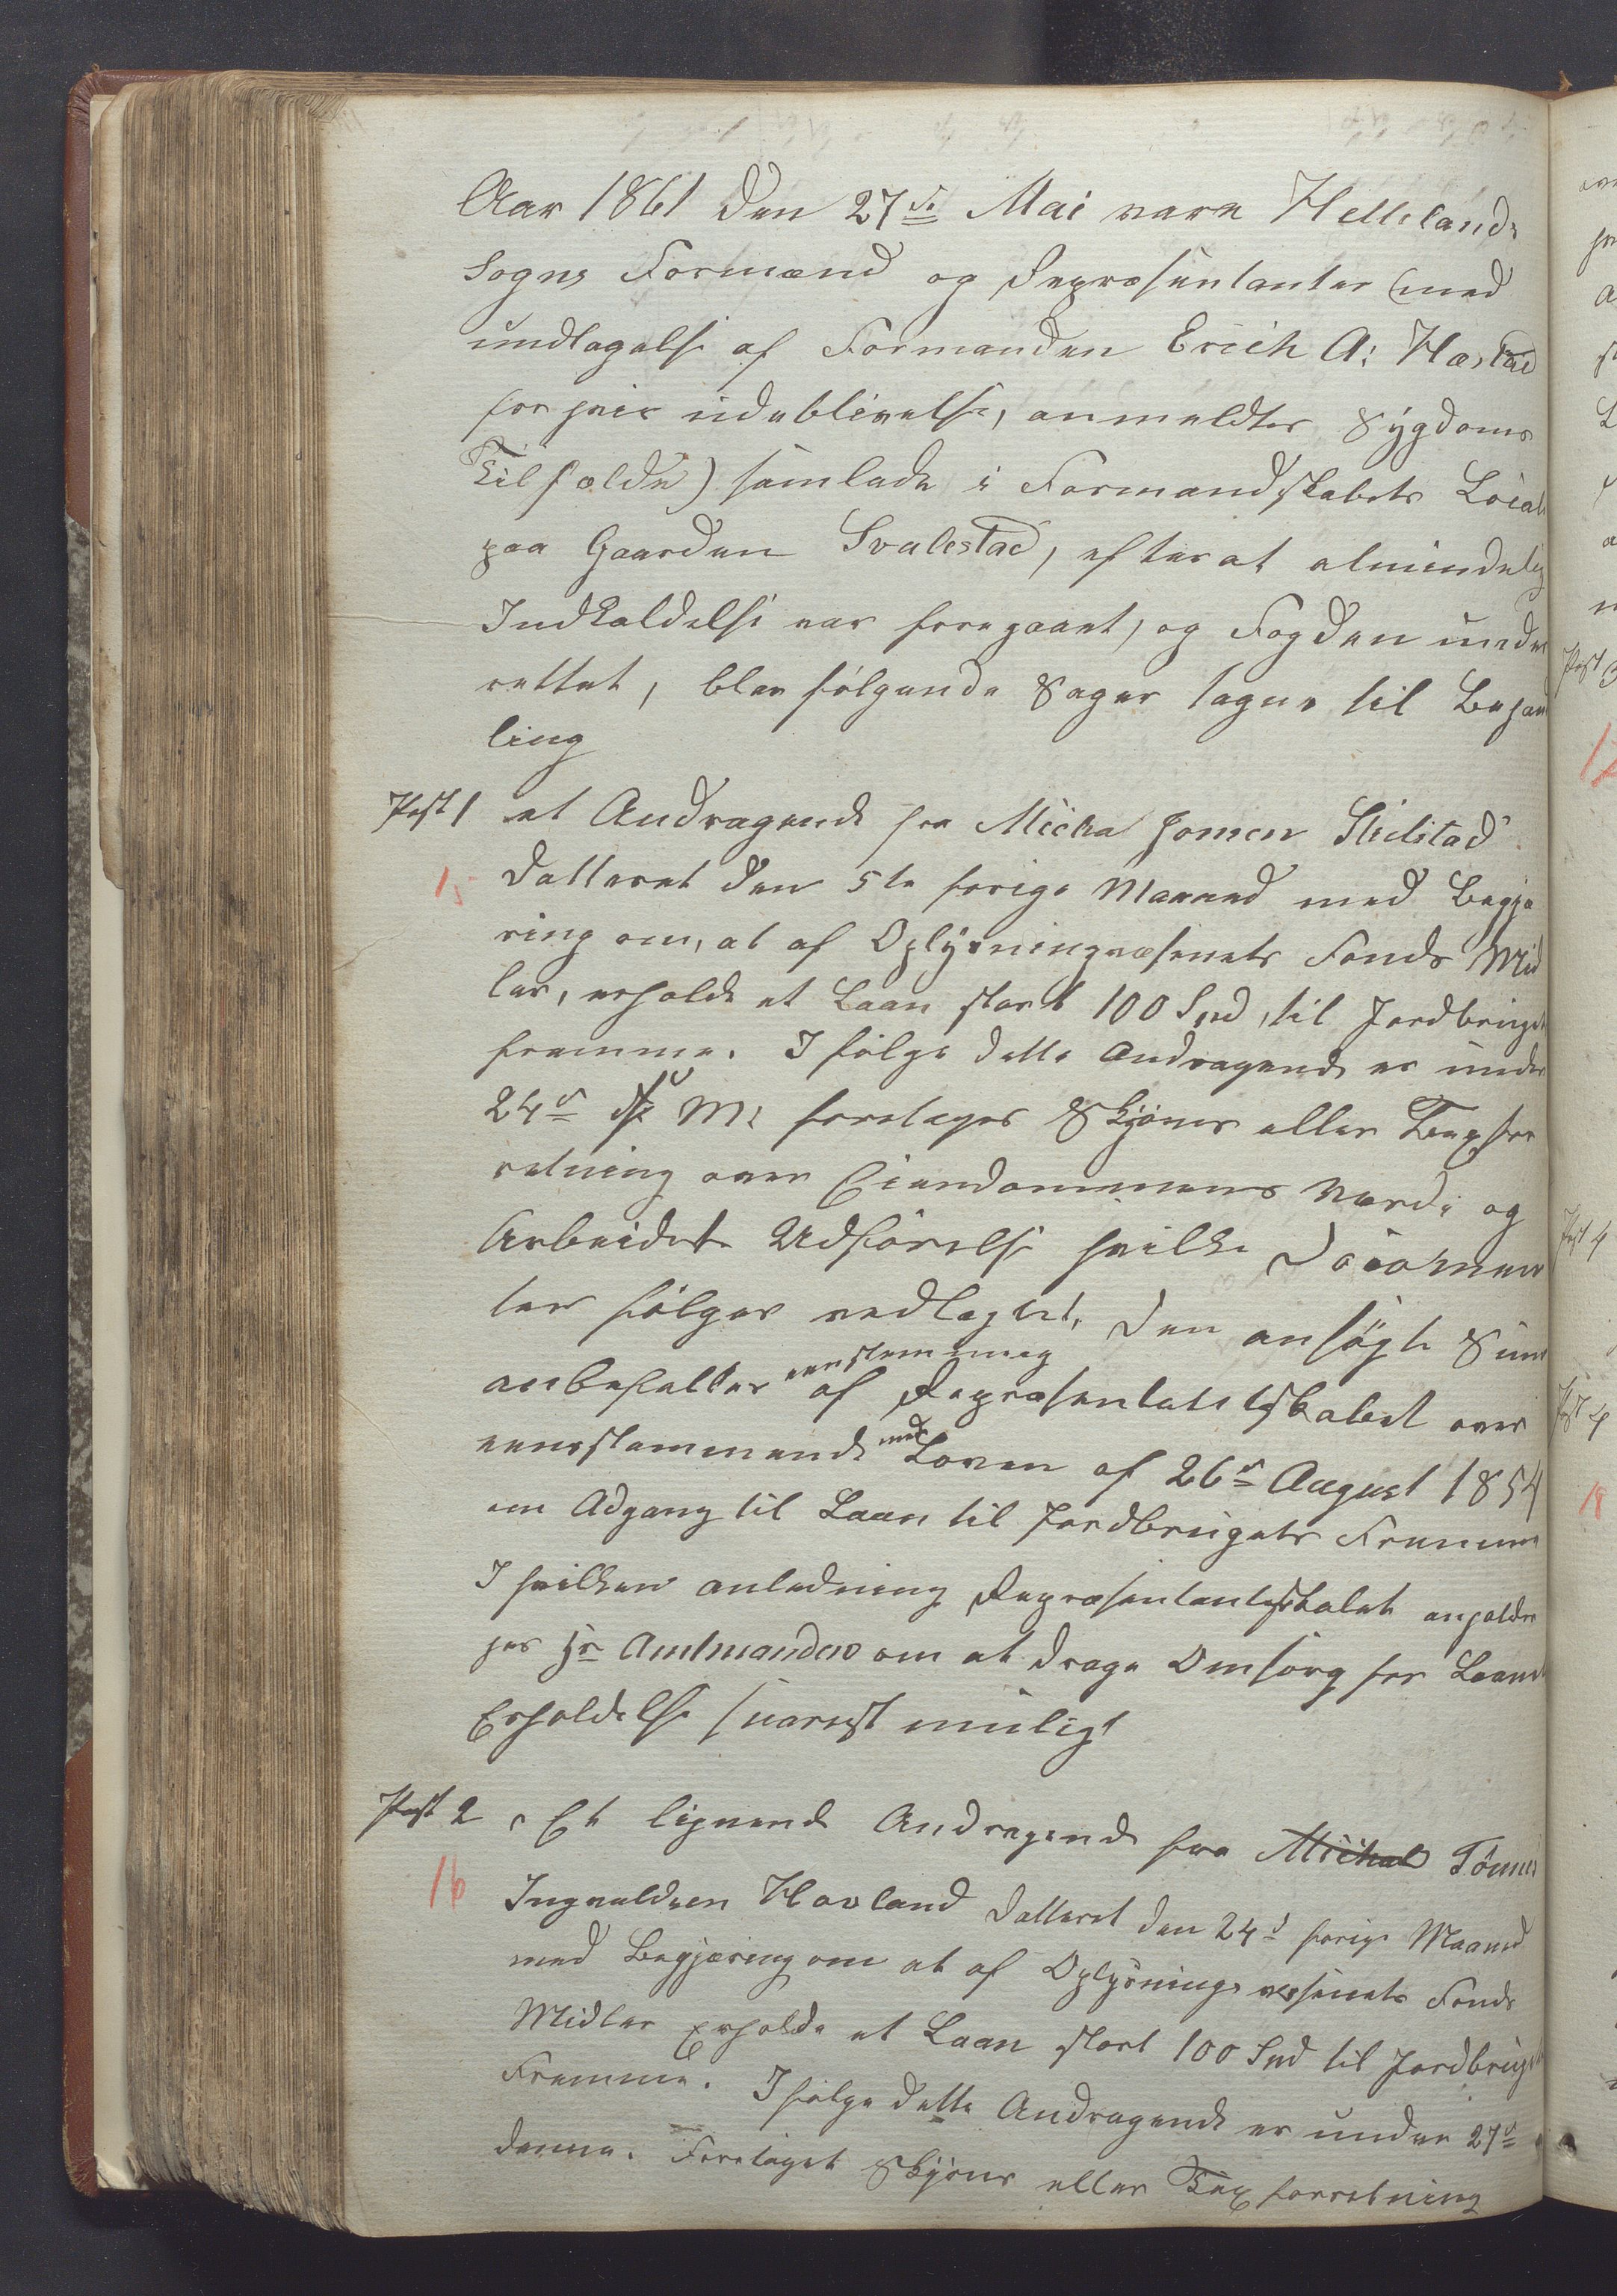 Aar 1861 den 27de Mai vare Hellelands
Sogns Formænd og Repræsentanter (med
undtagelse af Formanden Erich A: Hæstad
for hvis udeblivelse, anmeldtes Sygdoms
Tilfælde) samlede i Formandskabets Local
paa Gaarden Svalestad, efter at almindelig
Indkaldelse var foregaaet, og Fogden under
rettet, blev følgende Sager tagne til Behand
ling
Post 1 et Andragende fra Micha Jonsen
15 Datteret den 5te forige Maaned med Begjæ
ring om, at af Oplysningvæsenets Fonds Mid
ler, erholde et Laan stort 100 Spd, til Jordbruget
fremme. I følge dette Andragende er under
24de M: foretages Skjøns eller Taxfor
retning over Eiendommens Værdi og
Arbeidets Udførelse hvilke Documen
ter følger vedlagt. Den ansøgte Sum
anbefalles eenstemmig af Repræsentatskabet over
eensstemmende med Loven af 26de August 1854
om Adgang til Laan til Jordbrugets Fremme
I hvilken anledning Repræsentantskabet anholder
hos Hr Amtmanden om at drage Omsorg for Laanets
Erholdelse snarest muligt
Post 2 Et lignende Andragende fra Michal Tønnes
16 Ingvaldsen Hovland Datteret den 24de forige Maaned
med Begjæring om at af Oplysnings væsenets Fonds
Midler Erholde et Laan stort 100 Spd til Jordbruget
Fremme. I følge dette Andragende er under 27de
denne. Foretaget Skjøns eller Tax forretning